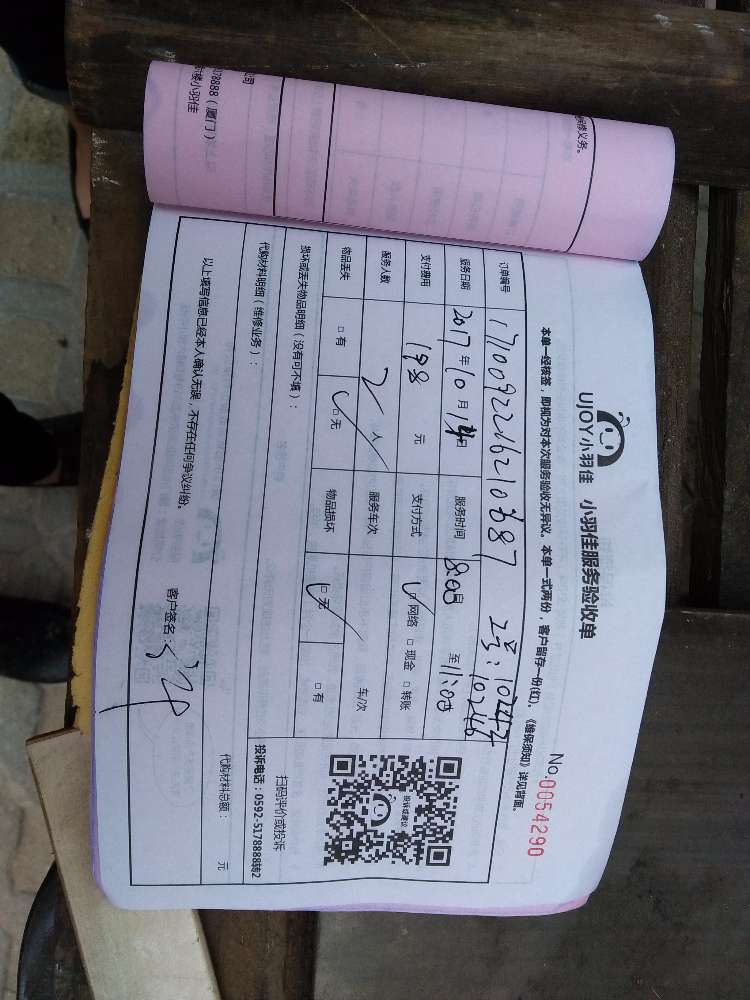 UJOY小羽佳 小羽佳服务验收单
No.0054290
本单一经核签，即视为对本次服务验收无异议。本单一式两份，客户留存一份(红)。《维保须知》详见背面。
订单编号 170092216210687 工号：10242
10246
服务日期 2017年10月14日 服务时间 8:00 至 11:00
支付费用 198 元 支付方式 网络 现金 转账
服务人数 2 人 服务车次 车/次
物品丢失 有 无 物品损坏 无 有
损坏或丢失物品明细（没有可不填）：
代购材料明细（维修业务）：
代购材料总额： 元
以上填写信息已经本人确认无误，不存在任何争议纠纷。
客户签名：
投诉或建议
扫码评价或投诉
投诉电话：0592-5178888转2
公司
078888（厦门）
楼小羽佳
保修义务。